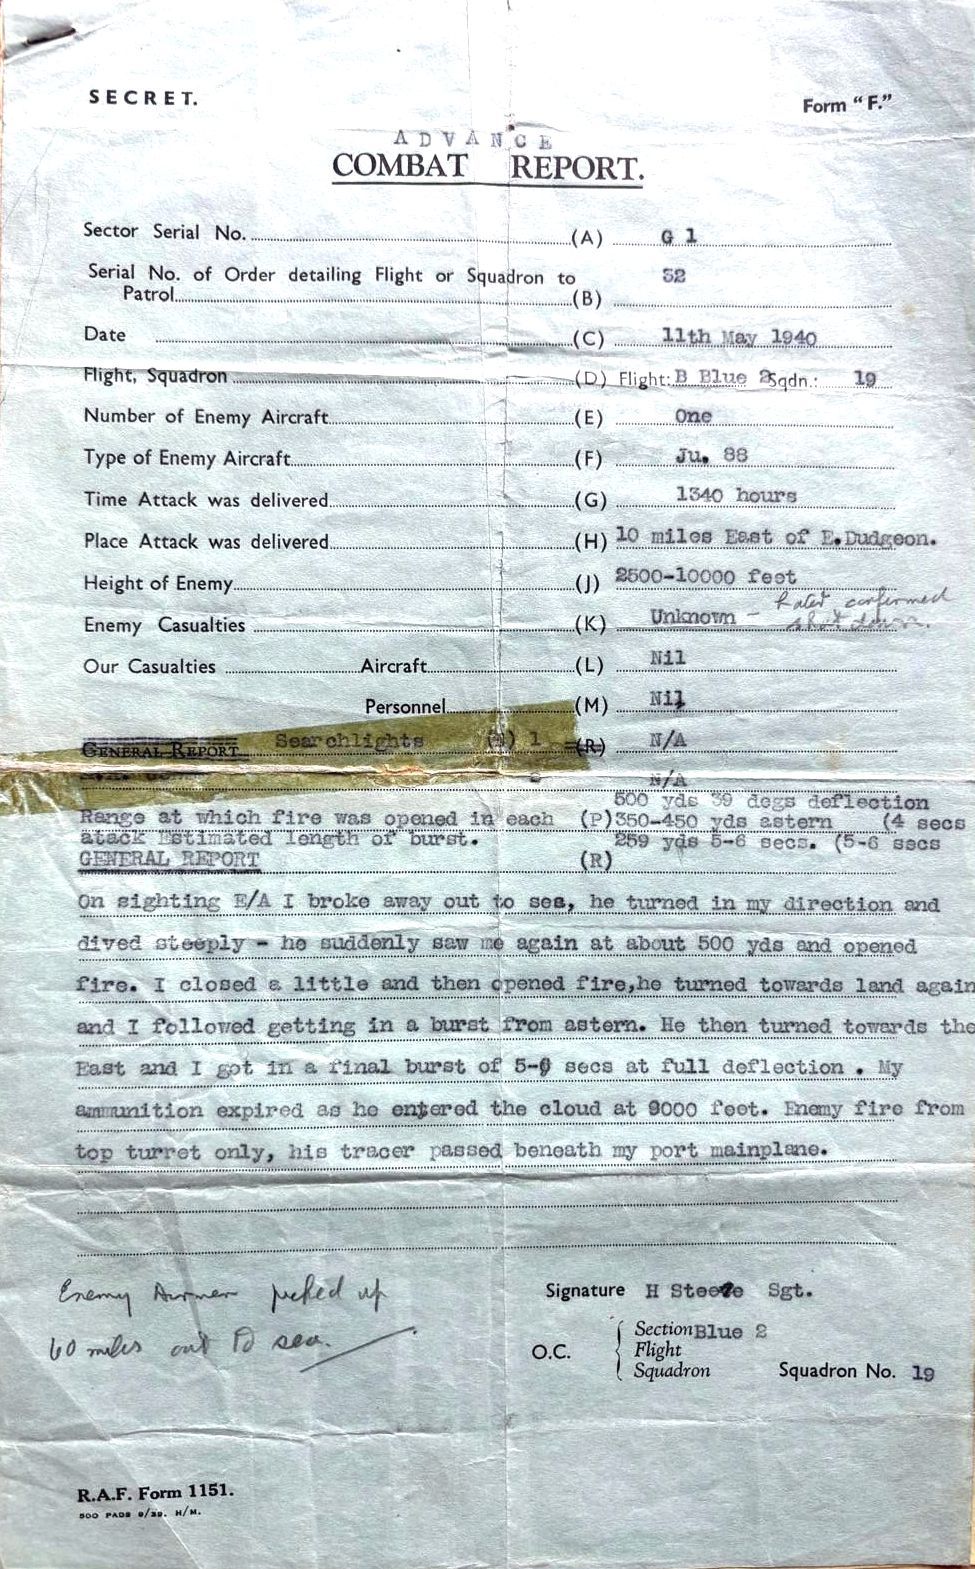 SECRET.
Form "F."
ADVANCE
COMBAT REPORT.
Sector Serial No. (A) G 1
Serial No. of Order detailing Flight or Squadron to 52
Patrol (B)
Date (C) 11th May 1940
Flight, Squadron (D) Flight: B Blue 2 Sqdn.: 19
Number of Enemy Aircraft (E) One
Type of Enemy Aircraft (F) Ju. 88
Time Attack was delivered (G) 1340 hours
Place Attack was delivered (H) 10 miles East of E.Dudgeon.
Height of Enemy (J) 2500-10000 feet
Enemy Casualties (K) Unknown - Later confirmed
shot down.
Our Casualties Aircraft (L) Nil
Personnel (M) Nil
GENERAL REPORT Searchlights 1 (R) N/A
N/A
500 yds 39 degs deflection
Range at which fire was opened in each (P) 350-450 yds astern (4 secs
atack Estimated length of burst. 259 yds 5-6 secs. (5-6 secs
GENERAL REPORT (R)
On sighting E/A I broke away out to sea, he turned in my direction and
dived steeply - he suddenly saw me again at about 500 yds and opened
fire. I closed a little and then opened fire,he turned towards land again
and I followed getting in a burst from astern. He then turned towards the
East and I got in a final burst of 5-6 secs at full deflection . My
ammunition expired as he entered the cloud at 9000 feet. Enemy fire from
top turret only, his tracer passed beneath my port mainplane.
Enemy Airmen picked up
60 miles out to sea.
Signature H Steere Sgt.
O.C. Section Blue 2
Flight
Squadron Squadron No. 19
R.A.F. Form 1151.
500 PADS 9/39. H/M.